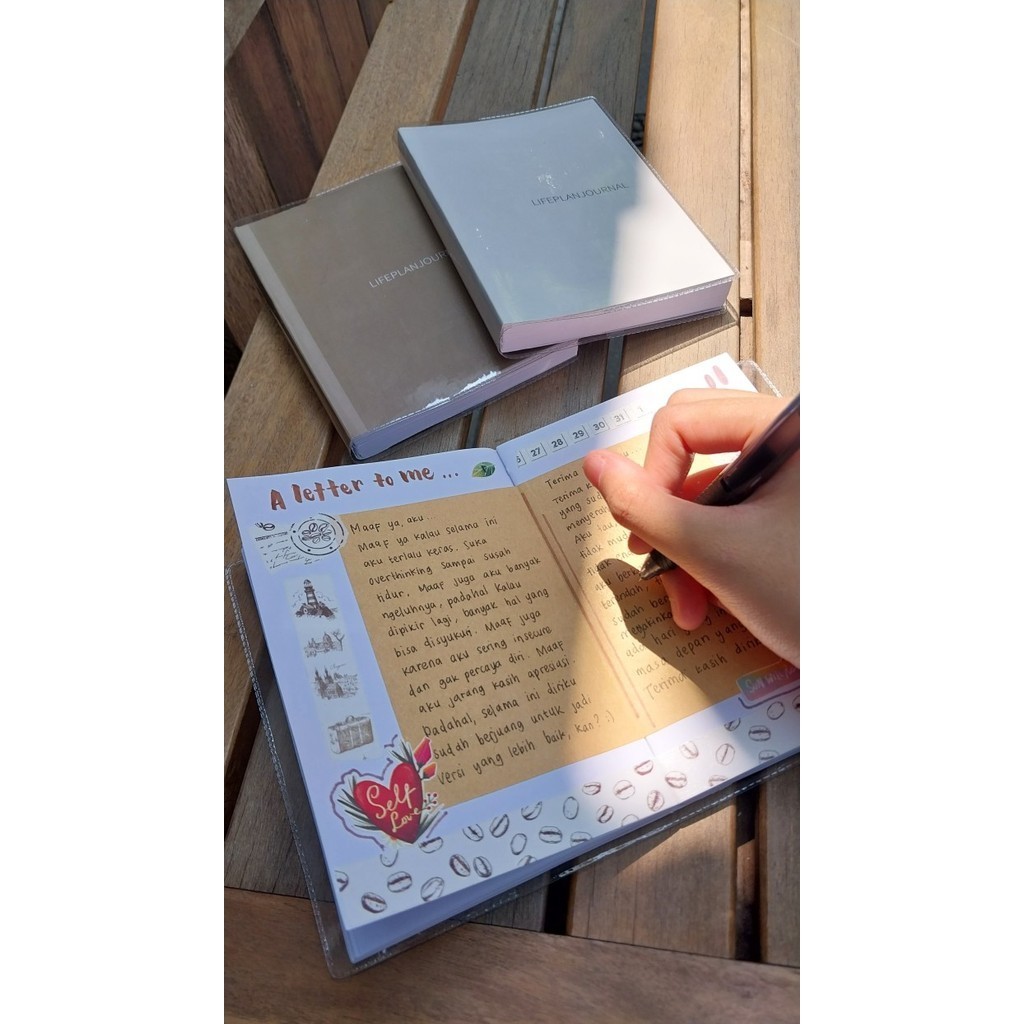 LIFEPLANJOURNAL
LIFEPLANJOUR
A letter to me ...
Maaf ya, aku..
Maaf ya kalau selama ini
aku terlalu keras. Suka
overthinking sampai susah
tidur. Maaf juga aku banyak
ngeluhnya, padahal kalau
dipikir lagi, banyak hal yang
bisa disyukuri. Maaf juga
karena aku sering insecure
dan gak percaya diri. Maaf
aku jarang kasih apresiasi.
Padahal, selama ini diriku
sudah berjuang untuk jadi
versi yang lebih baik, kan? :)
Self
Love
27 28 29 30 31 1
Terima
Terima k
yang su
menyera
Aku tau
tidak mud
tidak
aku
sudah ber
ada hari yang
masa depan yang
Terima kasih diri